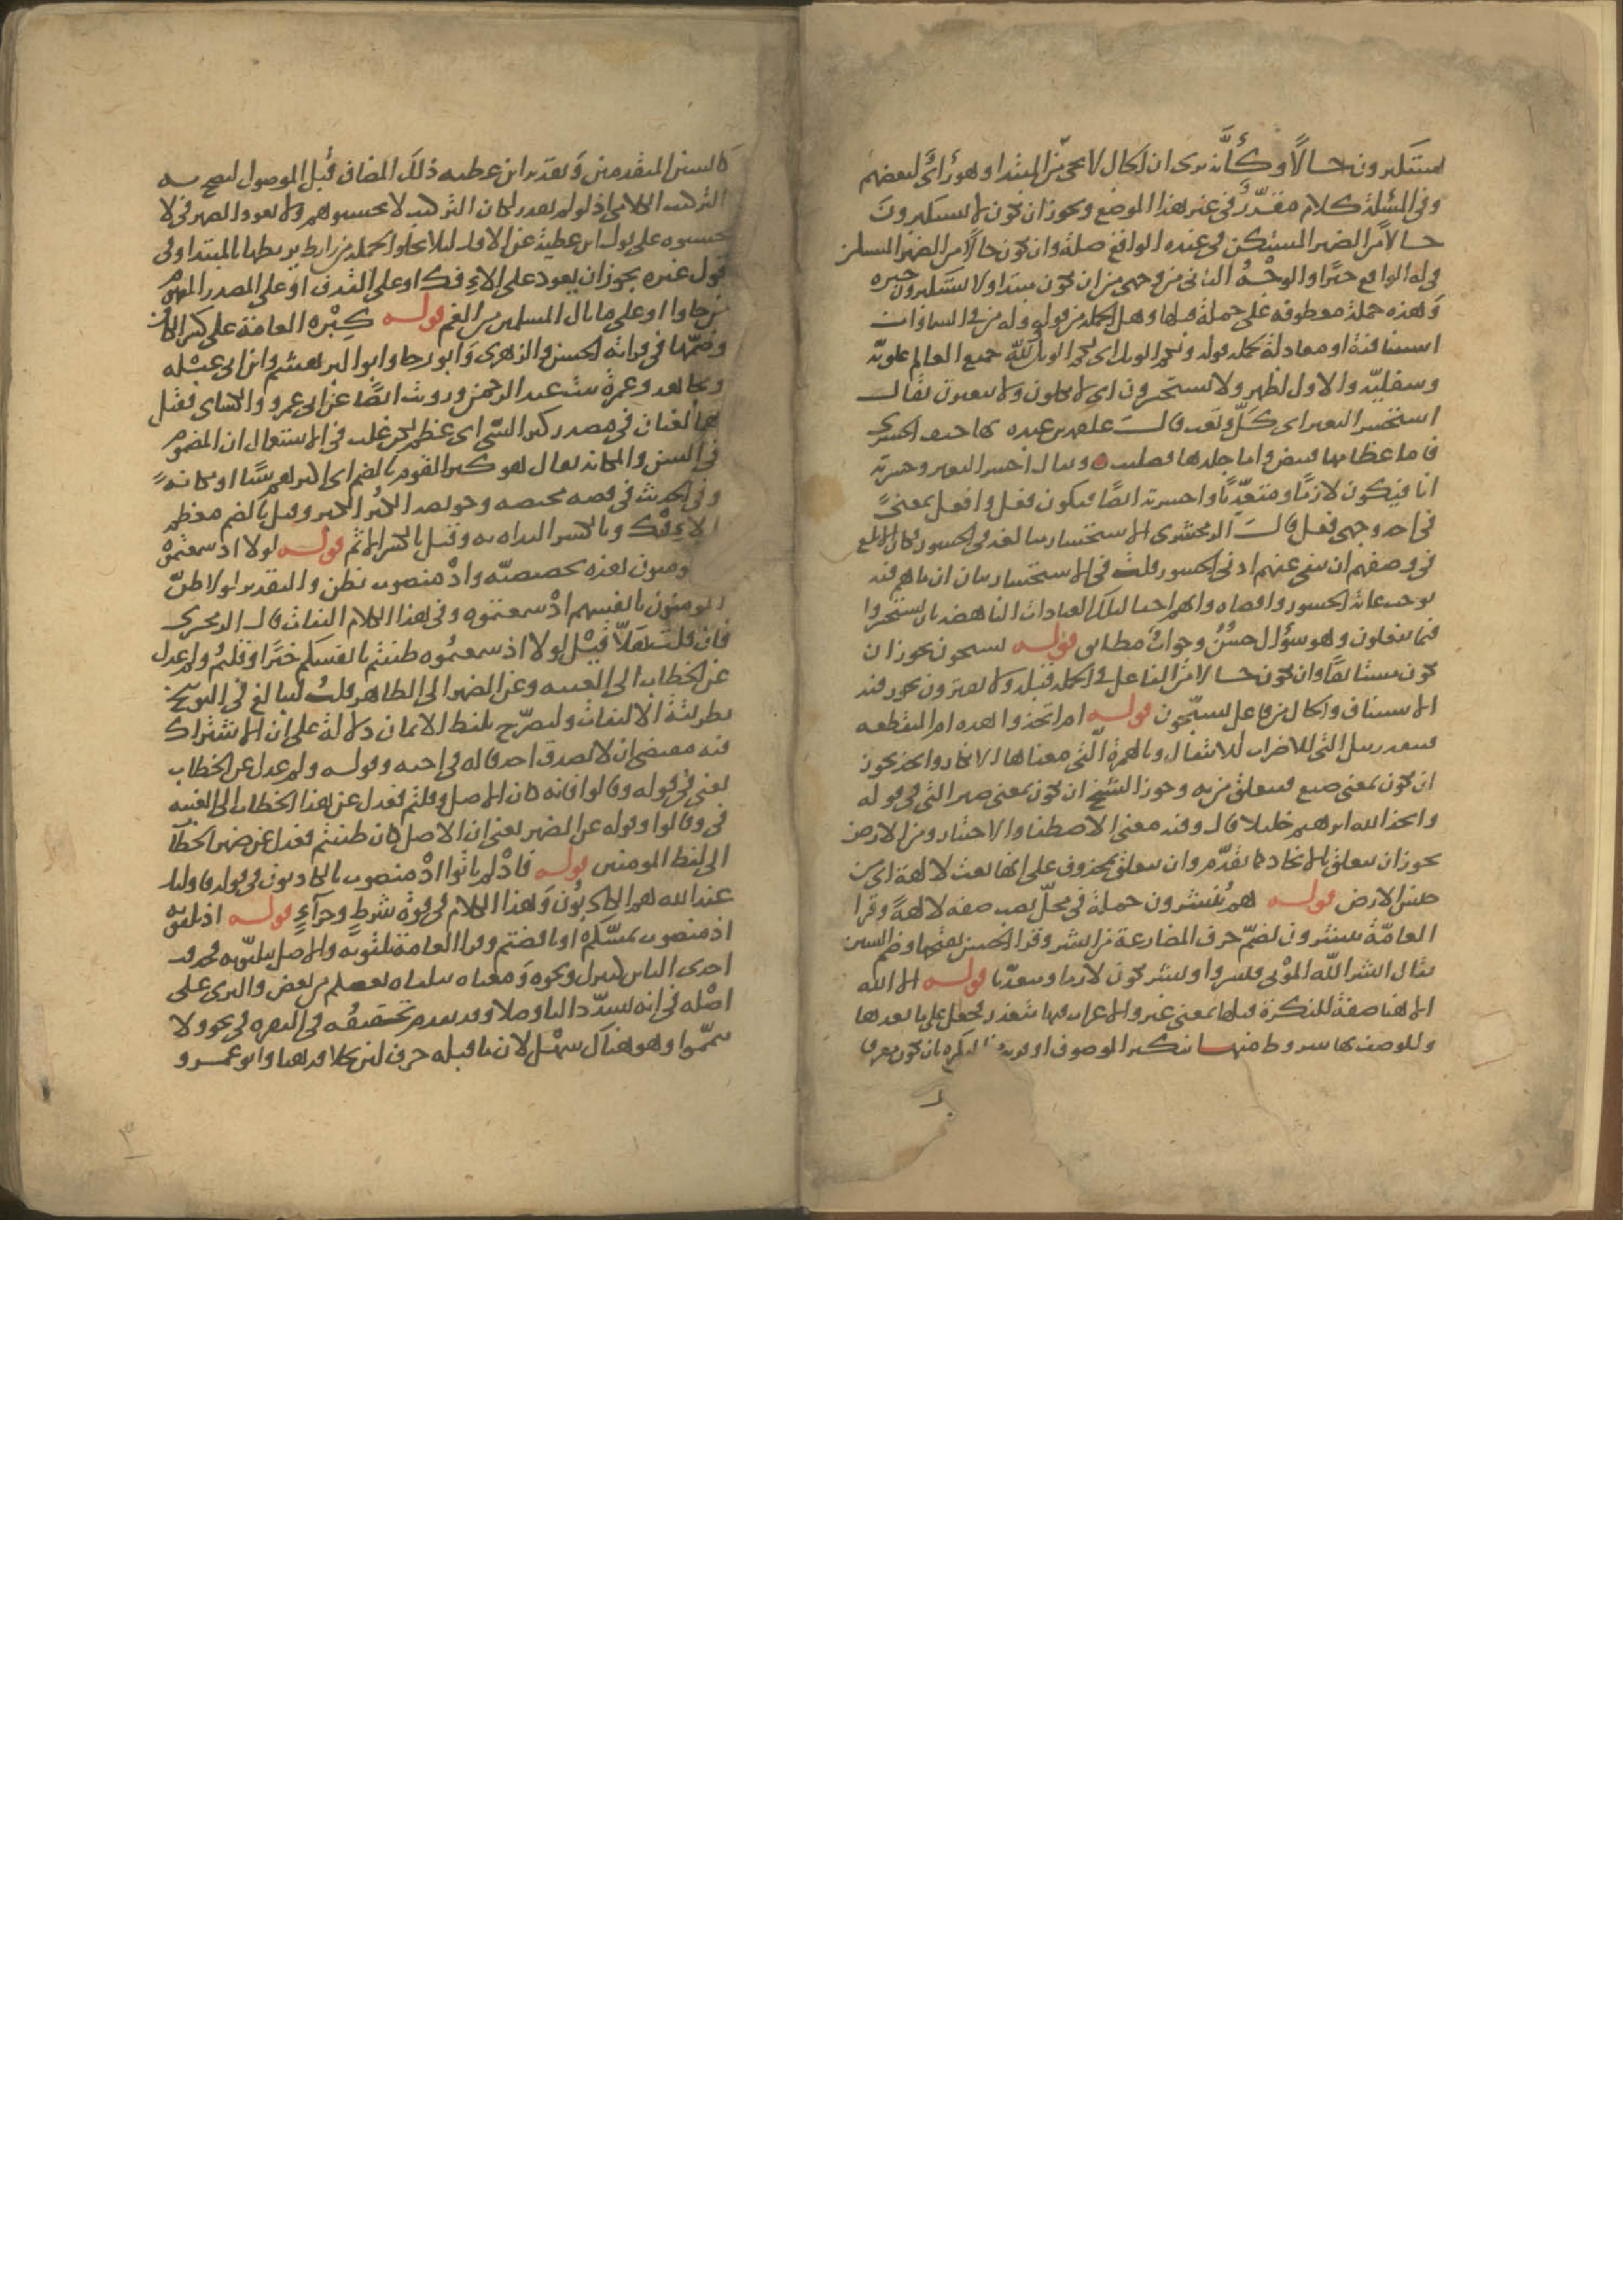 يستكبرون حالاً وكأنَّه يرى ان الحال لا يجي من المبتدا وهو رأي لبعضهم
وفي المسئلة كلام مقرّر في غير هذا الموضع ويجوز ان تكون لا يستكبرون
حالاً من الضمير المستكن في عنده الواقع صلة وان تكون حالاً من الضمير المستكن
في له الواقع خبرًا والوجه الثاني من وجهي من ان تكون مبتدا ولا يستكبرون خبره
وهذه جملة معطوفة على جملة قبلها وهل الجملة من قوله وله من في السماوات
استئنافية او معادلة لجملة قوله ولكم الويل اي لكم الويل ولله جميع العالم علويّه
وسفليّه والاول اظهر ولا يستحسرون اي لا يكلون ولا يتعبون يقال
استحسر البعير اي كَلَّ وتعب قال علقمة بن عبدة بها جيف الحسرى
فاما عظامها فبيض واما جلدها فصليب ويقال حسر البعير وحسرته
انا فيكون لازمًا ومتعدّيًا واحسرته ايضًا فيكون فعل وافعل بمعنىً
في احد وجهي فعل قال الزمخشري الاستحسار مبالغة في الحسور فكان الابلغ
في وصفهم ان ينفي عنهم ادنى الحسور قلت في الاستحسار بيان ان ما هم فيه
يوجب غاية الحسور واقصاه وانهم احقا لتلك العبادات الباهضة بان يستحسروا
فيما يفعلون وهو سؤال حسنٌ وجوابٌ مطابق قوله يسبحون يجوز ان
تكون مستانفًا وان تكون حالا من الفاعل في الجملة قبله ولا يفترون يجوز فيه
الاستئناف والحال من فاعل يسبّحون قوله ام اتخذوا هذه ام المنقطعة
فتقدر ببل التي للاضراب للانتقال وبالهمزة التي معناها الانكار واتخذ يجوز
ان تكون بمعنى صنع فيتعلق من به وجوز الشيخ ان تكون بمعنى صير التي في قوله
واتخذ الله ابرهيم خليلا قال وفيه معنى الاصطفا والاختيار ومن الارض
يجوز ان يتعلق بالاتخاذ كما تقدّم وان يتعلق بمحذوف على انها نعت لالهة اي من
جنس الارض قوله هم يُنشرون جملة في محلّ نصب صفة لالهةً وقرأ
العامّة ينشرون بضمّ حرف المضارعة من انشر وقرا الحسن بفتحها وضم الشين
يقال انشر الله الموتى فنشروا ونشر تكون لازما ومتعدّيا قوله الا الله
الا هنا صفة للنكرة قبلها بمعنى غير والاعراب فيها متعذر فجعل على ما بعدها
وللوصف بها شروط منها تنكير الموصوف او قربه من النكرة بان تكون معرفا
كالسنن المتقدمين وتقدير ابن عطيه ذلك المضاف قبل الموصول ليصح به
التركيب الكلامي اذ لو لم يقدر لكان التركيب لا تحسبوهم ولا يعود الضمير في لا
تحسبوه على قول ابن عطية عن الافك لئلا تخلوا الجملة من رابط يربطها بالمبتدا وفي
قول غيره يجوز ان يعود على الإفك او على القذف او على المصدر المفهوم
من جاوا او على ما نال المسلمين من الغم قوله كِبْره العامة على كسر الكاف
وضمّها في قراته الحسن والزهري وابو رجا وابوا البرهشيم وابن ابي عبله
ومجاهد وعمرة بنت عبد الرحمن ورويت ايضًا عن ابي عمرو والكساي فقيل
هما لغتان في مصدر كبر الشي اي عظم لكن غلب في الاستعمال ان المضموم
في السن والمكانة يقال هو كبر القوم بالضم اي اكبرهم سنًا او مكانةً
وفي الحديث في قصة محيصة وحويصة الكُبر الكبر وقيل بالضم معظم
الإفك وبالكسر البداءة به وقيل بالكسر الاثم قوله لولا اذ سمعتموه
ومنون هذه تحضيضيّة واذْ منصوب بظن والتقدير لولا ظنّ
المومنون بانفسهم اذْ سمعتموه وفي هذا الكلام التفات قال الزمخشري
فان قلت هلاّ قيل لولا اذ سمعتموه ظننتم بانفسكم خيرًا وقلتم ولم عدل
عن الخطاب الى الغيبه وعن الضمير الى الظاهر قلت ليبالغ في التوبيخ
بطريقة الالتفات وليصرّح بلفظ الايمان دلالة على ان الاشتراك
فيه مقتضى ان لا يصدق احد قاله في اخيه وقوله ولم عدل عن الخطاب
يعني في قوله وقالوا فانه كان الاصل وقلتم فعدل عن هذا الخطاب الى الغيبه
في وقالوا وقوله عن الضمير يعني ان الاصل كان ظننتم فعدل عن ضمير الخطاب
الى لفظ المومنين قوله فاذْ لم ياتوا اذْ منصوب بالكاذبون في قوله فاوليك
عند الله هم الكاذبون وهذا الكلام في قوة شرطٍ وجزآءٍ قوله اذ تلقونه
اذ منصوب بمسّكم او بافضتم وقرا العامة تلقونه والاصل تتلقونه فحذفت
احدى التاين كتنزل ونحوه ومعناه يتلقاه بعضكم من بعض والبزي على
اصْله في انه يشدّد التا وصلا وقد تقدم تحقيقه في البقره في نحو ولا
تيمّموا وهو هناك سهْل لان ما قبله حرف لين بخلافه هنا وابو عمرو